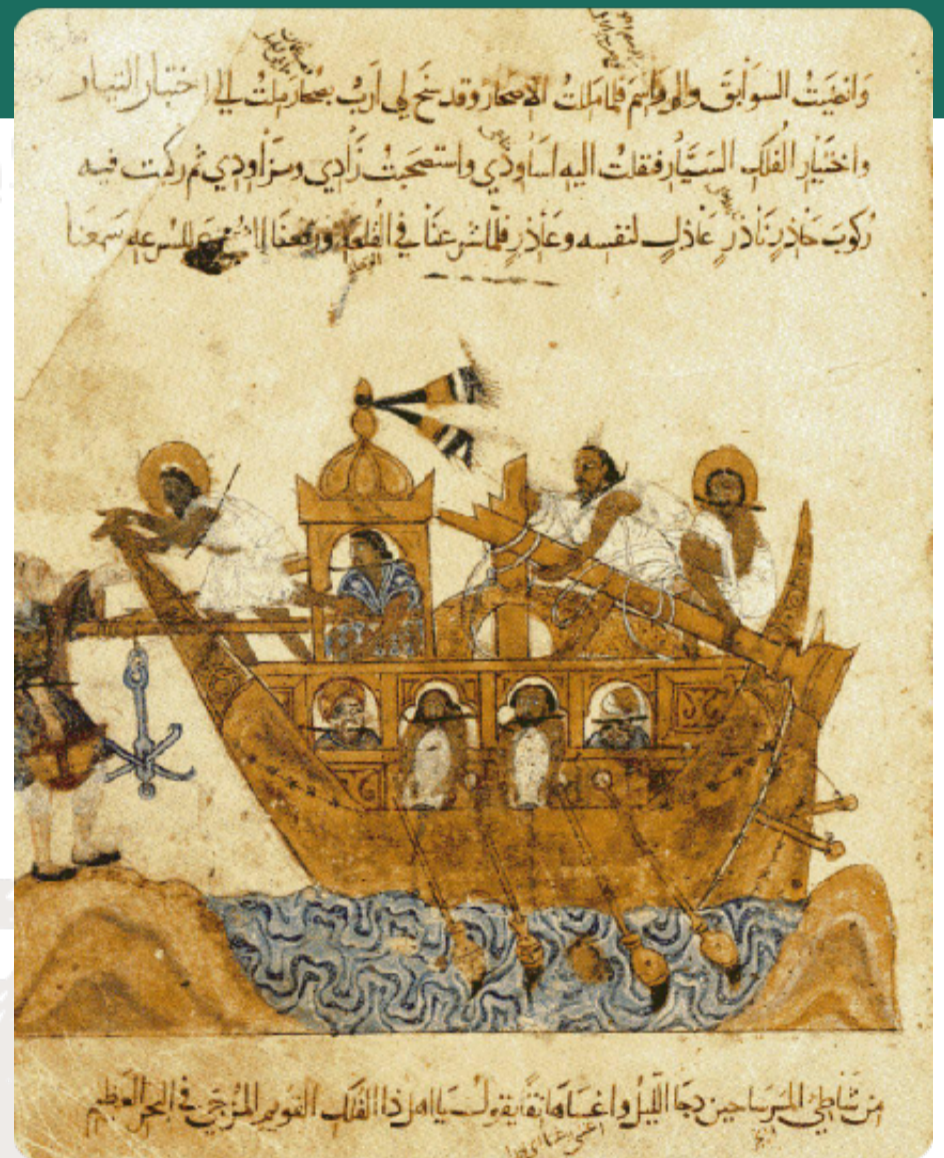 وَانضَيتُ السوَابقَ والمرَاسِمَ فلما مَللتُ الاصحَار وقد سَنح لي اَرَبٌ بصُحَار مِلتُ الي اختيَار التيار
واختيَار الفُلك السَيَّار فنقلت اليه اسَاوِدي واستصحبتُ زَادي ومزَاودي ثم ركبت فيه
رُكوبَ حَاذِرٍ نَاذرٍ عَاذِلٍ لنفسِه وعَاذرٍ فلمَّا شرعنَا في القُلعَةِ ورفعنَا الشرع للسُرعه سَمعنَا
من شاطئ المرسَا حين دجَا الليلُ واغسَا هَاتفًا يقول يا اهل ذا الفُلك القويم المُزجَى في البحر العَظيم